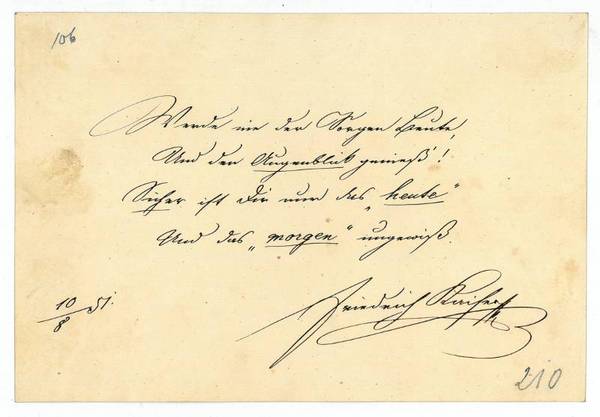 106
Werde nie der Sorgen Beute,
Und den Augenblick genieß'!
Sicher ist Dir nur das „heute“
Und das „morgen“ ungewiß.
10/8 51.
Friedrich Kaiser
210